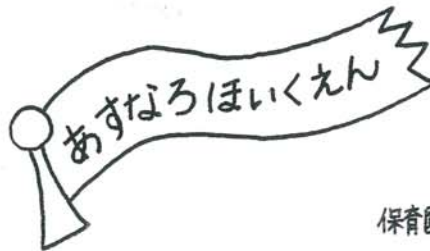 あすなろほいくえん
保育